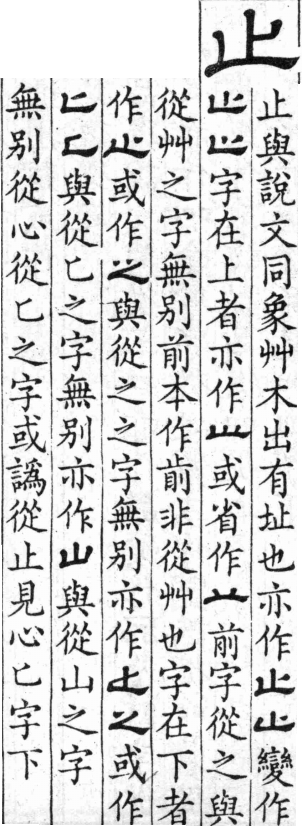 止
止與說文同象艸木出有址也亦作止止變作
止䒑字在上者亦作䒑或省作䒑前字從之與
從艸之字無別前本作歬非從艸也字在下者
作止或作之與從之之字無別亦作土之或作
匕與從匕之字無別亦作山與從山之字
無別從心從匕之字或譌從止見心匕字下